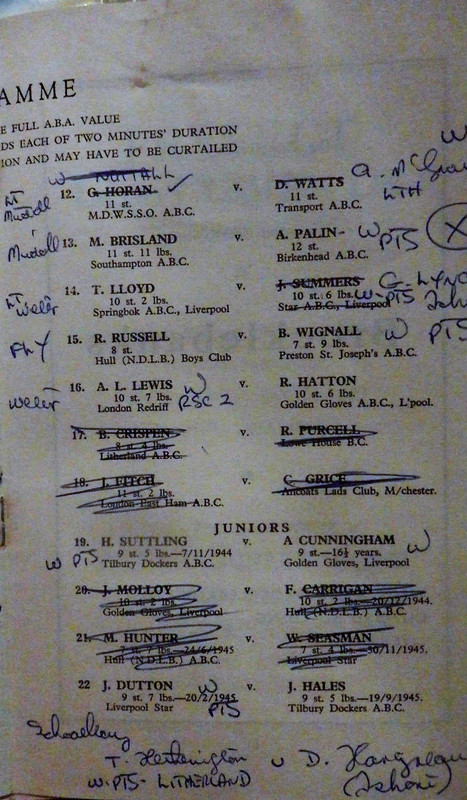 AMME
E FULL A.B.A. VALUE
DS EACH OF TWO MINUTES' DURATION
ION AND MAY HAVE TO BE CURTAILED
W NUTTALL
12. G. HORAN v. D. WATTS
11 st. 11 st.
M.D.W.S.S.O. A.B.C. Transport A.B.C. LTH
LT
Middell
Middell 13. M. BRISLAND v. A. PALIN- W PTS X
11 st. 11 lbs. 12 st.
Southampton A.B.C. Birkenhead A.B.C.
LT
Welter
14. T. LLOYD v. J. SUMMERS G. LYNC
10 st. 2 lbs. 10 st. 6 lbs. W-PTS
Springbok A.B.C., Liverpool Star A.B.C., Liverpool
FLY 15. R. RUSSELL v. B. WIGNALL W PTS
8 st. 7 st. 9 lbs.
Hull (N.D.L.B.) Boys Club Preston St. Joseph's A.B.C.
Welter 16. A. L. LEWIS W v. R. HATTON
10 st. 7 lbs. RSC 2 10 st. 6 lbs.
London Redriff Golden Gloves A.B.C., L'pool.
17. B. CRISPEN v. R. PURCELL
8 st. 4 lbs. Lowe House B.C.
Litherland A.B.C.
18. J. FITCH v. C. GRICE
11 st. 2 lbs. Ancoats Lads Club, M/chester.
London East Ham A.B.C.
JUNIORS
19. H. SUTTLING v. A CUNNINGHAM W
W PTS 9 st. 5 lbs.—7/11/1944 9 st.—16½ years.
Tilbury Dockers A.B.C. Golden Gloves, Liverpool
20. J. MOLLOY v. F. CARRIGAN
10 st. 2 lbs. 10 st. 2 lbs.—20/12/1944.
Golden Gloves, Liverpool Hull (N.D.L.B.) A.B.C.
21. M. HUNTER v. W. SEASMAN
7 st. 7 lbs.—24/6/1945 7 st. 4 lbs.—30/11/1945.
Hull (N.D.L.B.) A.B.C Liverpool Star
22 J. DUTTON W v. J. HALES
9 st. 7 lbs.—20/2/1945 9 st. 5 lbs.—19/9/1945.
Liverpool Star PTS Tilbury Dockers A.B.C.
T. Hetherington v D.
W. PTS- LITHERLAND